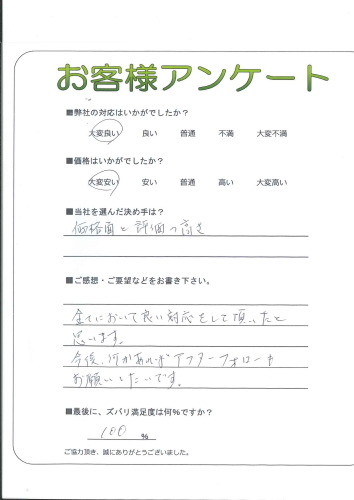 お客様アンケート
■弊社の対応はいかがでしたか?
大変良い 良い 普通 不満 大変不満
■価格はいかがでしたか?
大変安い 安い 普通 高い 大変高い
■当社を選んだ決め手は?
価格面と評価の高さ
■ご感想・ご要望などをお書き下さい。
全てにおいて良い対応をして頂いたと
思います。
今後、何かあればアフターフォローも
お願いしたいです。
■最後に、ズバリ満足度は何%ですか?
100 %
ご協力頂き、誠にありがとうございました。